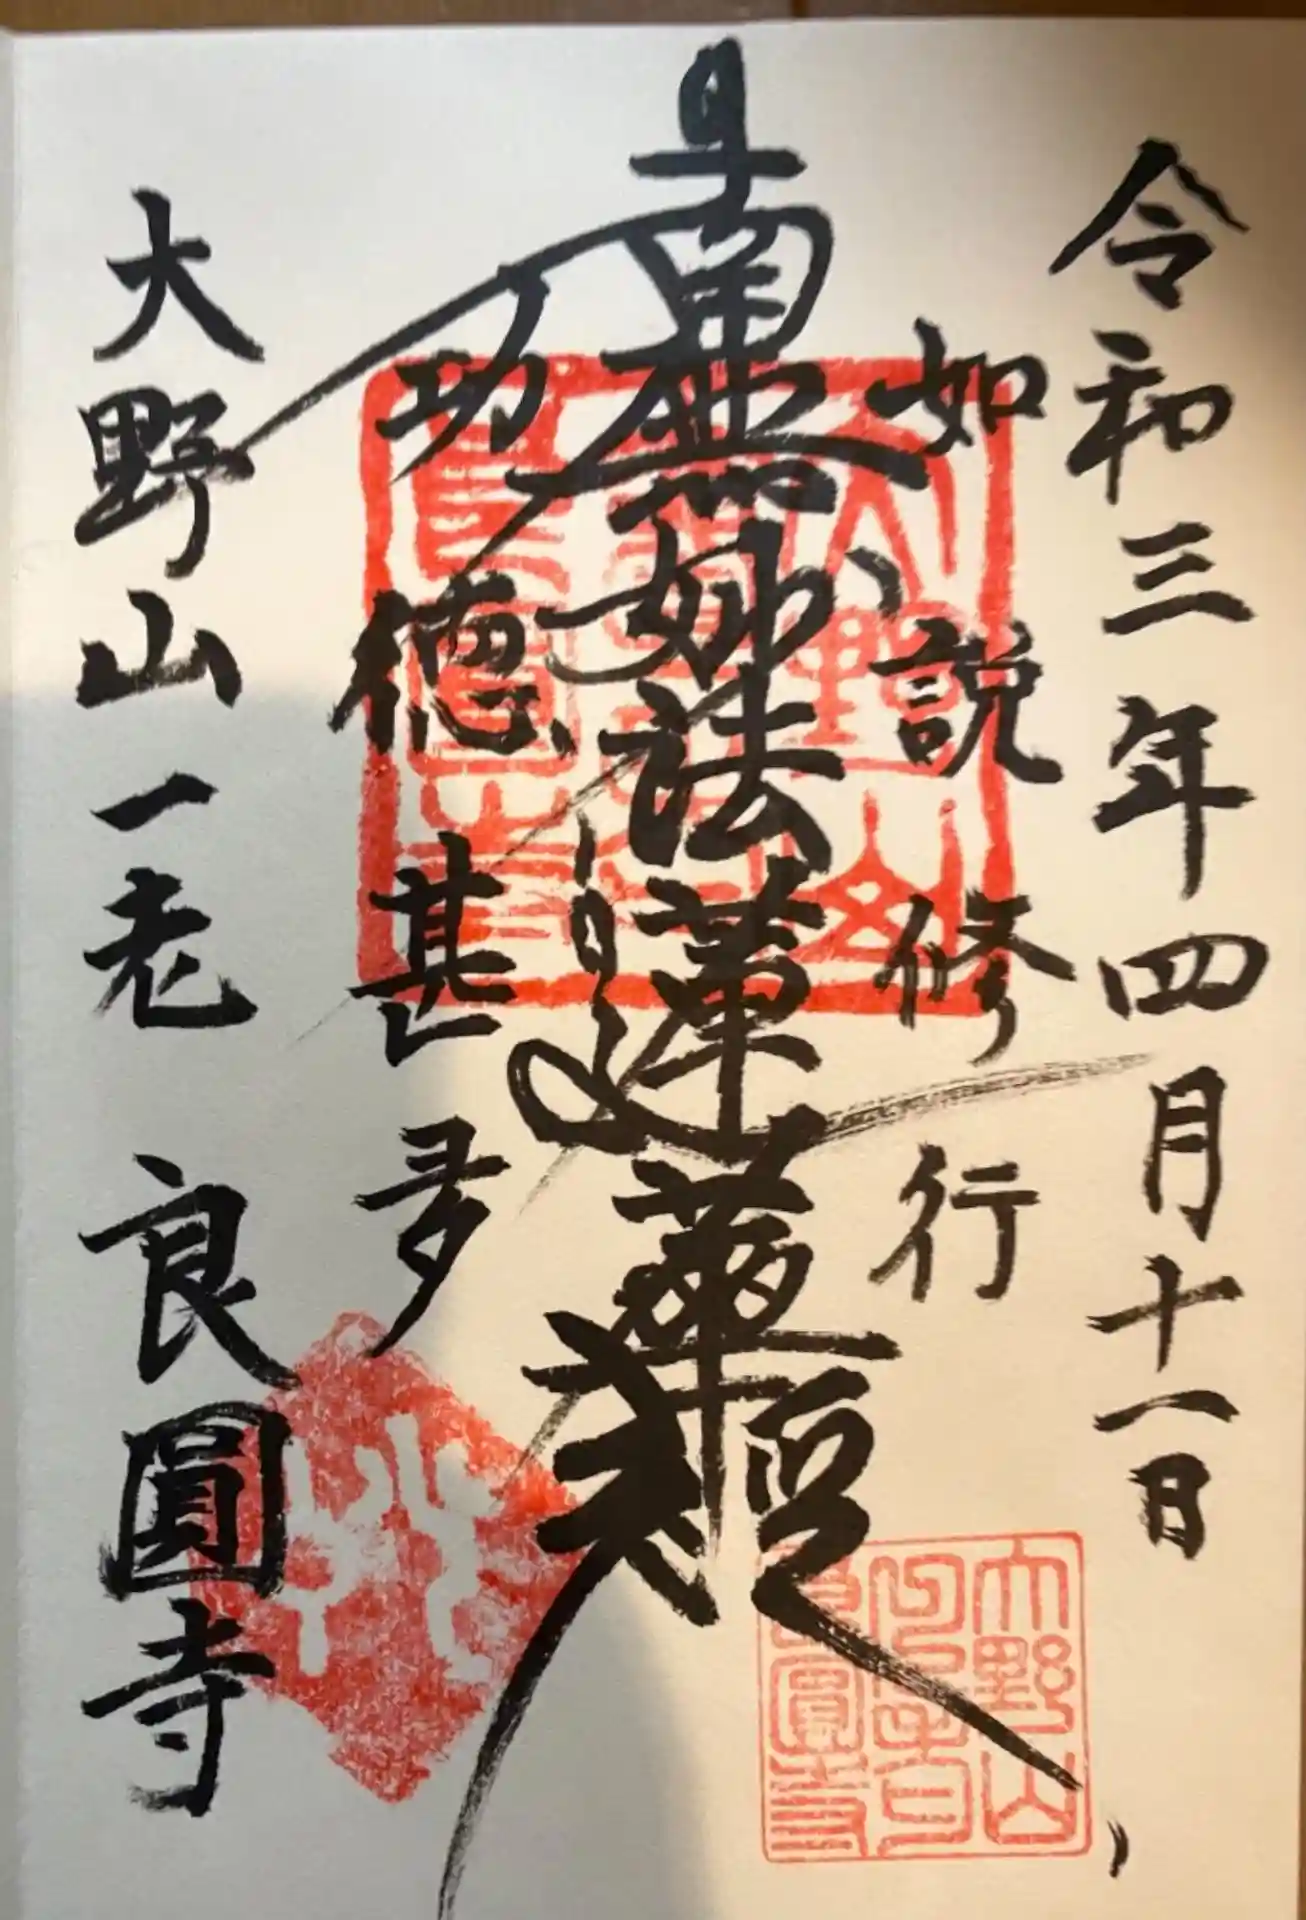 令和三年四月十一日
如説修行
南無妙法蓮華経
功徳甚多
大野山一老 良圓寺
大野山